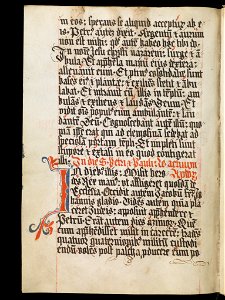 in eos: sperans se aliquid acceptur ab e
is. Petr9 aute dixit. Argentu z aurum
non est mihi: qd aut habeo hoc tibi do.
In noie iesu christi nazareni: surge z a
bula. Et apphesa manu eius dextera:
alleuauit eum. Et ptin9 cosolidate sunt
bases ei9 z plantae: z exiliens stetit z abu
labat. Et intrauit cum illis in teplu: am
bulans z exiliens z laudans deum. Et
vidit ois populus eum ambulante z lau
dante deu. Cognoscebant aute illu: quo
ipse erat qui ad elemosinam sedebat ad
speciosa porta templi. Et impleti sunt
stupore z extasi in eo quod contigerat
illi. In die s. Petri z Pauli. Actuum
In diebus illis: Misit herodes
rex man9: vt affligeret quosda de
ecclesia. Occidit autem Jacobu frem jo
hannis gladio. Videns autem quia pla
ceret Judeis: apposuit apphendere z
Petru. Erat autem dies azimor9. Que
cum apphedisset misit in carcere: tradens
quatuor quaternionib9 militu custodi
endu: volens post pascha pducere eum po